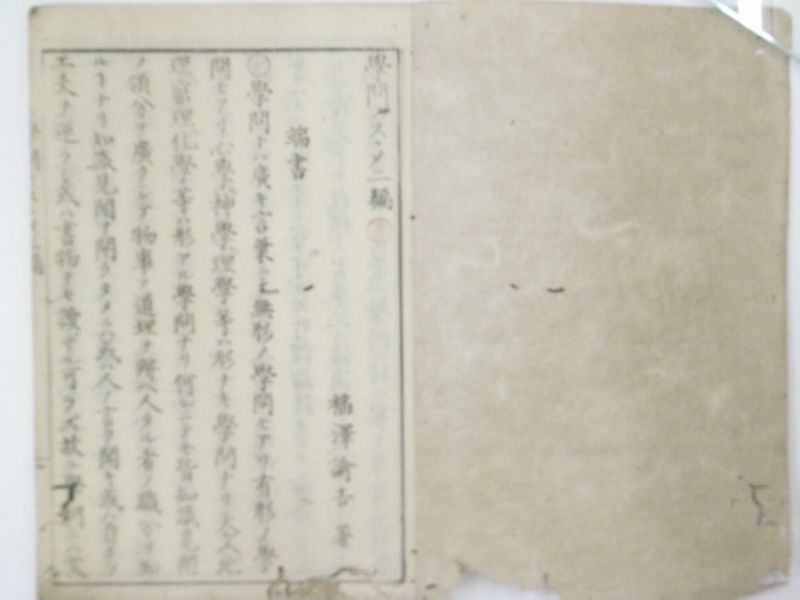 學問ノスヽメ二編
福澤諭吉 著
端書
學問トハ廣キ言葉ニテ無形ノ學問モアリ有形ノ學
問モアリ心學神學理學等ハ形ナキ學問ナリ天文地
理窮理化學等ハ形アル學問ナリ何レニテモ皆知識見聞
ノ領分ヲ廣クシテ物事ノ道理ヲ辨ヘ人タル者ノ職分ヲ知
ルコトナリ知識見聞ヲ開クタメニハ或ハ人ノ言ヲ聞キ或ハ自カラ
工夫ヲ運ラシ或ハ書物ヲモ讀ザル可ラズ故ニ學問ニハ文